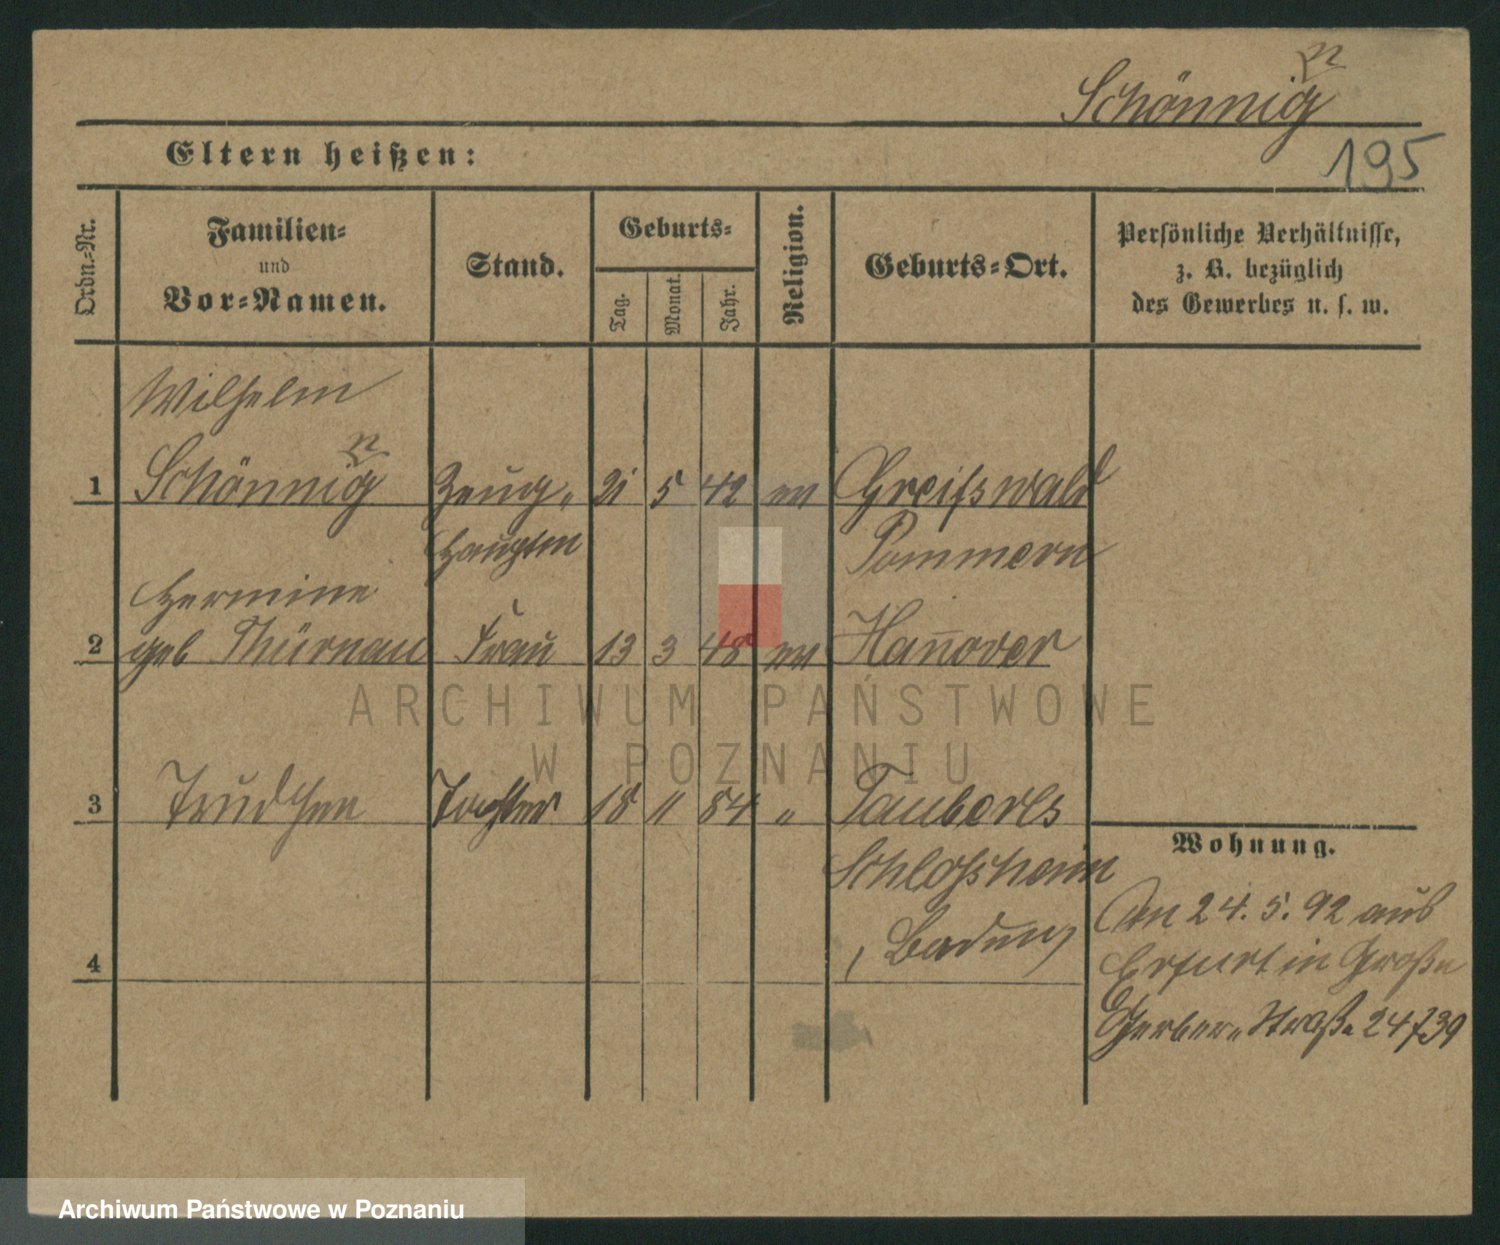 Schönnig
n
195
Eltern heißen:
Ordn.-Nr.
Familien-
und
Vor-Namen.
Stand.
Geburts-
Tag.
Monat.
Jahr.
Religion.
Geburts-Ort.
Persönliche Verhältnisse,
z. B. bezüglich
des Gewerbes u. s. w.
Wilhelm
n
1 Schönnig Zeug- 21 5 42 ev Greifswald
Hauptm Pommern
Hermine
2 geb Thürnau Frau 13 3 48 ev Hannover
3 Trudchen Tochter 18 11 84 "
Wohnung.
4
An 24. 5. 92 aus
Erfurt in Große
Gerber-Straße 24/39
ARCHIWUM PAŃSTWOWE
W POZNANIU
Archiwum Państwowe w Poznaniu